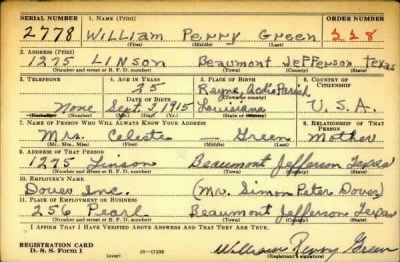 SERIAL NUMBER 1. NAME (Print) ORDER NUMBER
2778 William Perry Green 228
(First) (Middle) (Last)
2. ADDRESS (Print)
1275 LINSON Beaumont Jefferson Texas
(Number and street or R. F. D. number) (Town) (County) (State)
3. TELEPHONE 4. AGE IN YEARS 5. PLACE OF BIRTH 6. COUNTRY OF CITIZENSHIP
25 Rayne, Acdia Parish
DATE OF BIRTH (Town or county)
None Sept 1915 Louisiana U.S.A.
(Mo.) (Day) (Yr.) (State or country)
7. NAME OF PERSON WHO WILL ALWAYS KNOW YOUR ADDRESS 8. RELATIONSHIP OF THAT PERSON
Mrs. Celeste — Green Mother
(Mr., Mrs., Miss) (First) (Middle) (Last)
9. ADDRESS OF THAT PERSON
1275 Linson Beaumont Jefferson Texas
(Number and street or R. F. D. number) (Town) (County) (State)
10. EMPLOYER'S NAME
Inc. (Mr. Simon Peter)
11. PLACE OF EMPLOYMENT OR BUSINESS
256 Pearl Beaumont Jefferson Texas
(Number and street or R. F. D. number) (Town) (County) (State)
I AFFIRM THAT I HAVE VERIFIED ABOVE ANSWERS AND THAT THEY ARE TRUE.
REGISTRATION CARD
D. S. S. Form 1 (over) William Perry Green
(Registrant's signature)